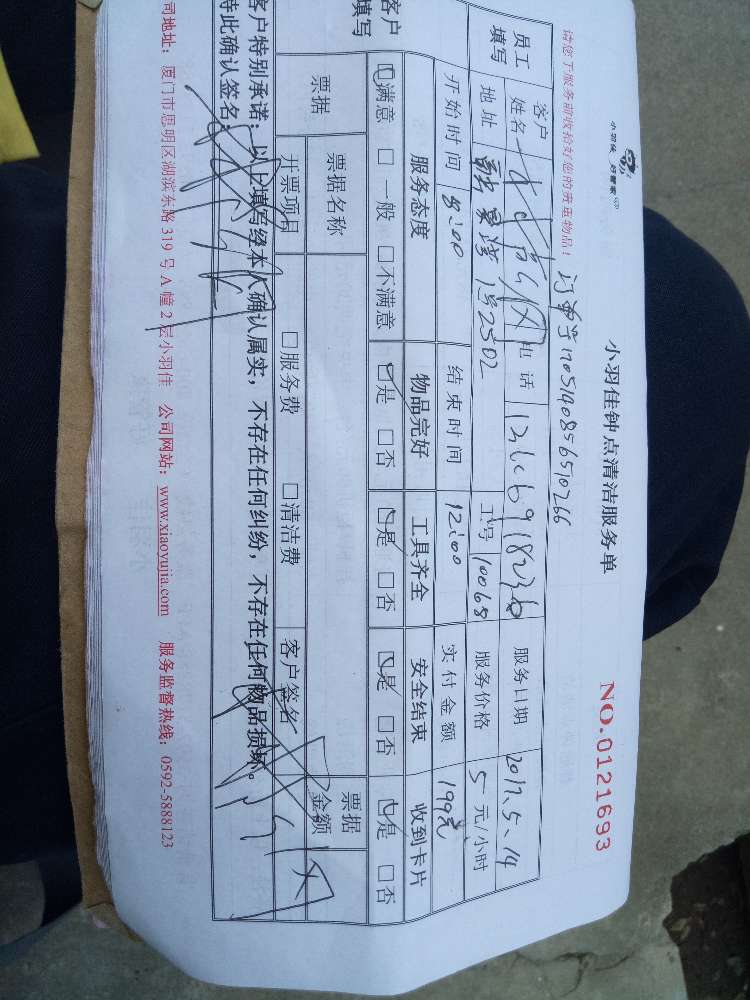 小羽佳 好管家
小羽佳钟点清洁服务单
NO.0121693
请您于服务前收拾好您的贵重物品!
订单号1705140856510266
员工填写
客户姓名
电话
服务日期 2017.5.14
地址
1号2502
工号 10068
服务价格 5 元/小时
开始时间 8:00
结束时间 12:00
实付金额 199元
客户填写
服务态度 物品完好 工具齐全 安全结束 收到卡片
☑满意 □一般 □不满意 ☑是 □否 ☑是 □否 ☑是 □否 ☑是 □否
票据
票据名称
票据金额
开票项目 □服务费 □清洁费
客户签名
客户特别承诺:以上填写经本人确认属实,不存在任何纠纷,不存在任何物品损坏。
特此确认签名:
司地址:厦门市思明区湖滨东路 319 号 A 幢 2 层小羽佳 公司网站:www.xiaoyujia.com 服务监督热线:0592-5888123